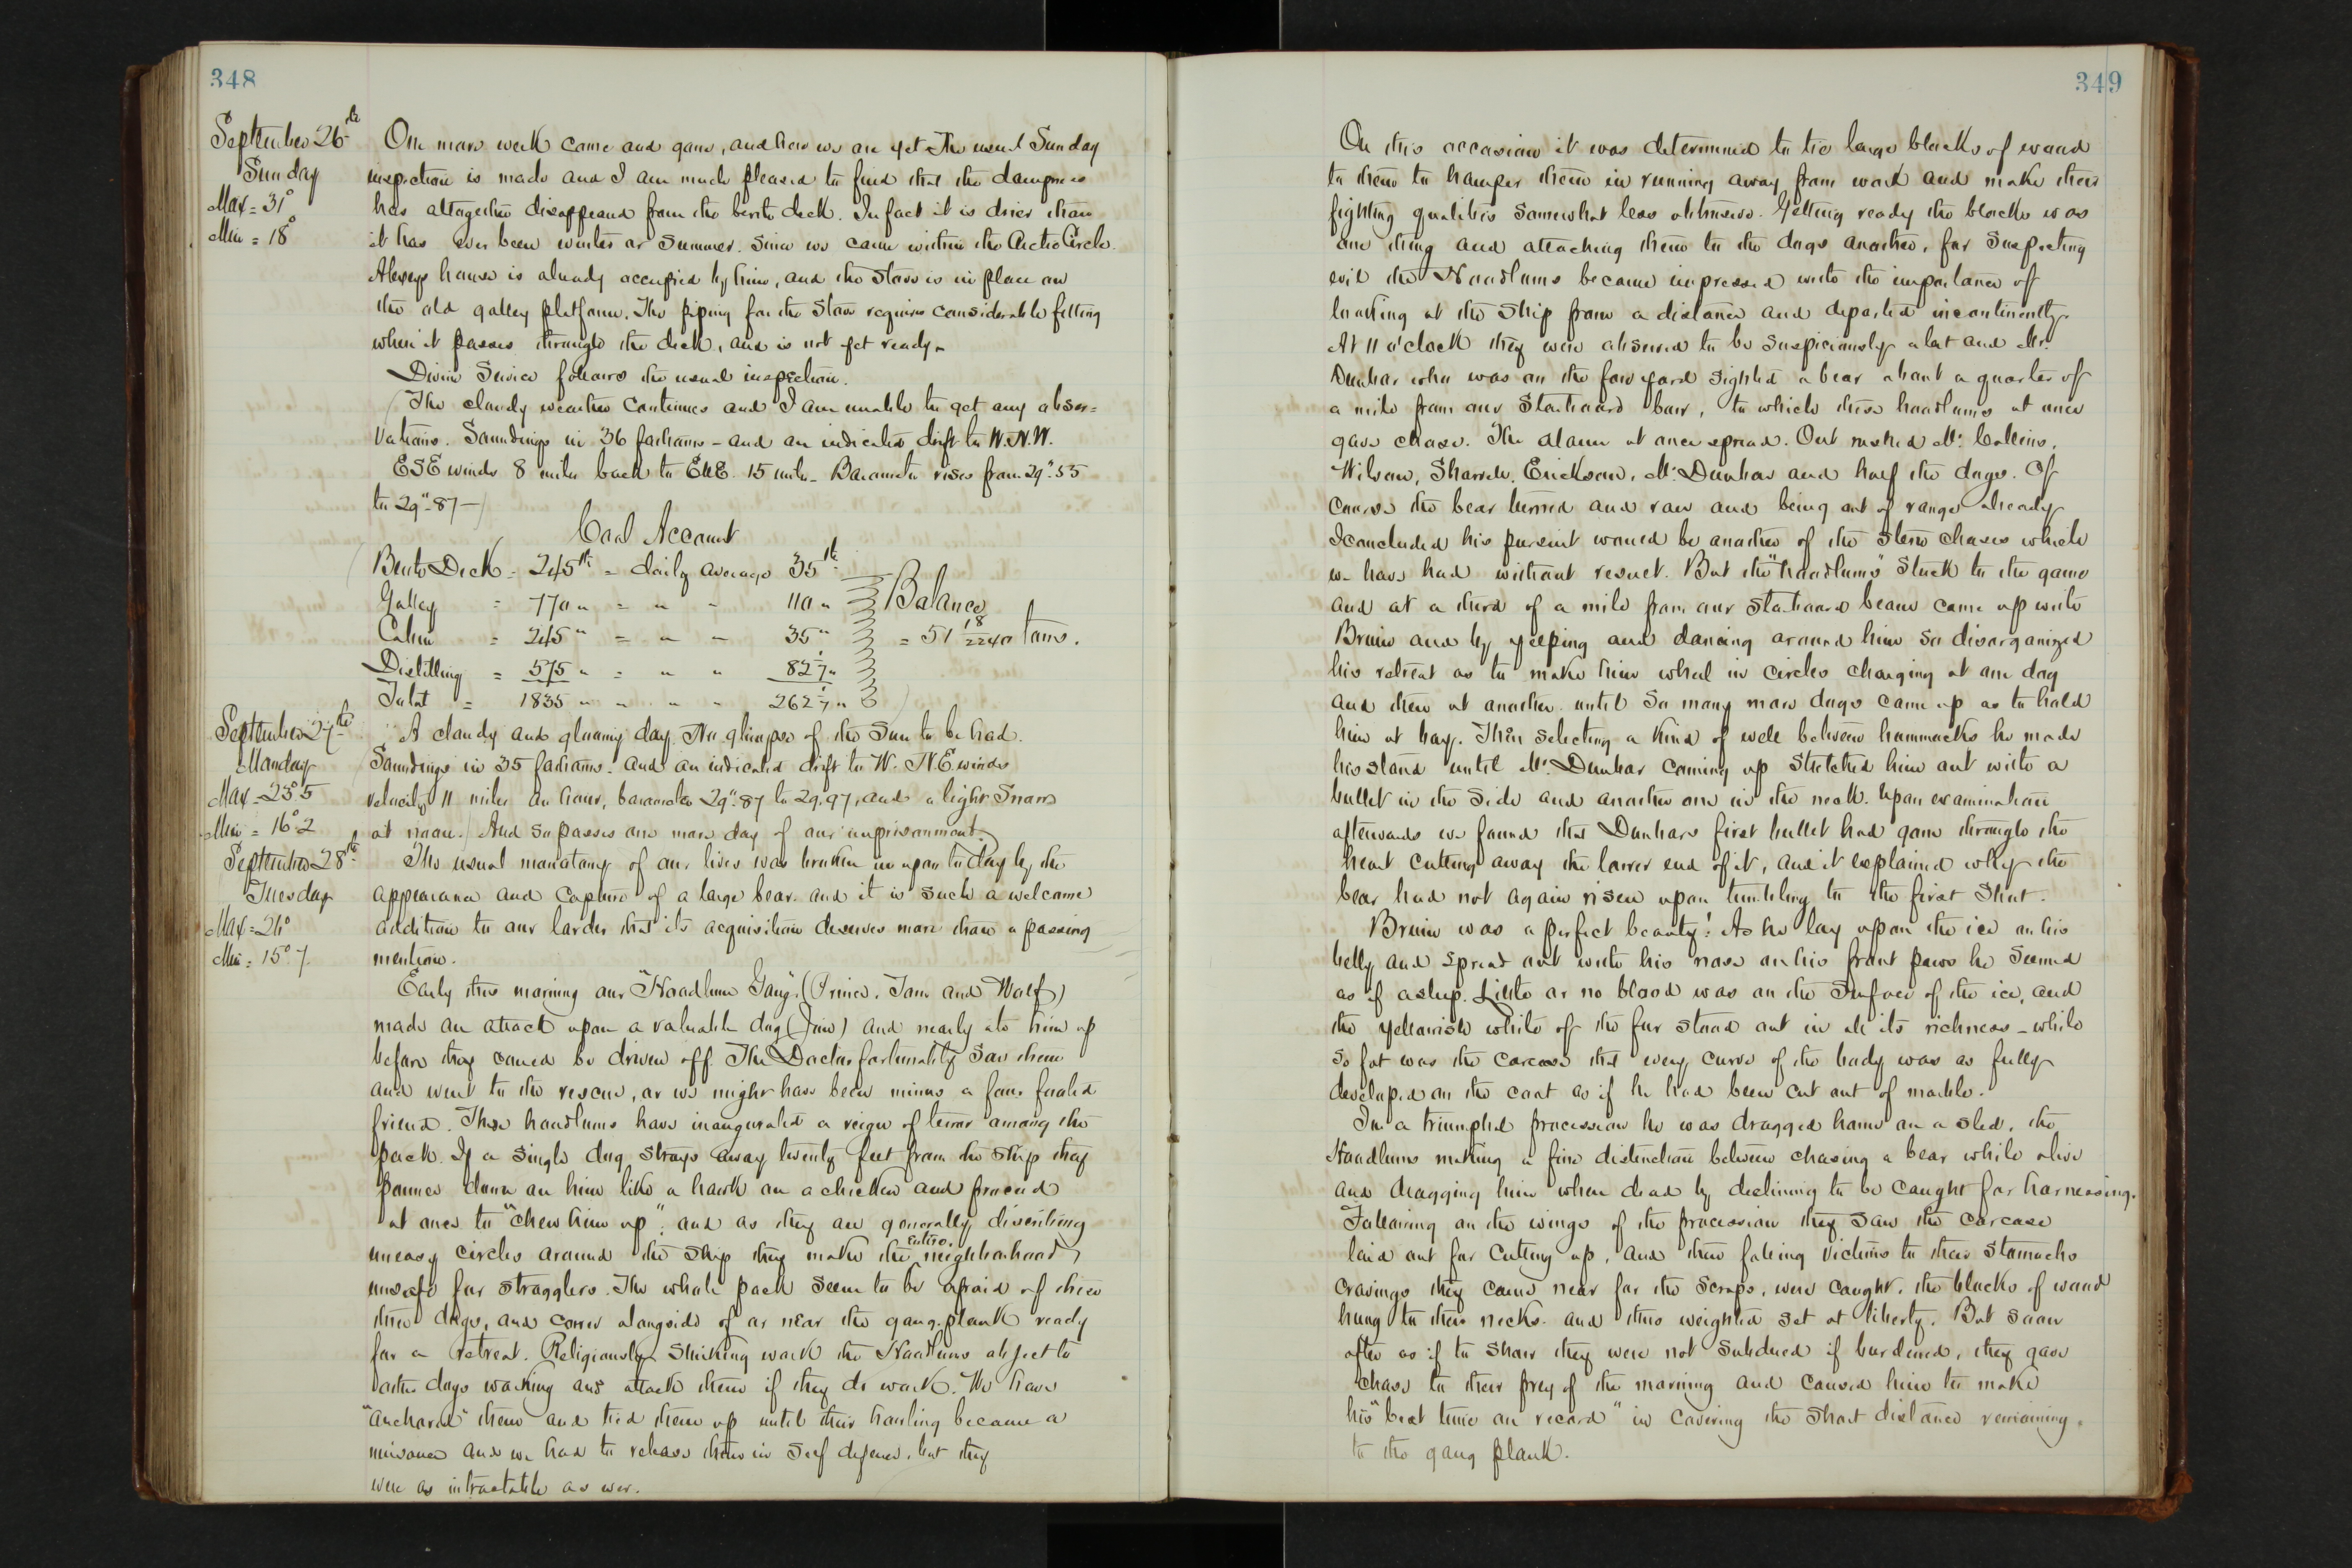 348
September 26th
Sunday
Max = 31°
Min = 18°
One more week come and gone, and here we are yet. The usual Sunday
inspection is made and I am much pleased to find that the dampness
has altogether disappeared from the berth deck. In fact it is drier than
it has ever been winter or summer. Since we came within the Arctic Circle.
Alexey's house is already occupied by him, and the stove is in place on
the old galley platform. The piping for the stove requires considerable fitting
where it passes through the deck, and is not yet ready.
Divine Service follows the usual inspection.
(The cloudy weather continues and I am unable to get any obser=
vations. Soundings in 36 fathoms - and an indicated drift to W.N.W.
ESE winds 8 miles back to ENE. 15 miles. Barometer rises from 29".55
to 29".87 -)
Coal Account
(Berth Deck = 245 lbs = daily average 35 lbs
Galley = 770 " = " " 110 "
Cabin = 245 " = " " 35 "
Distilling = 575 " = " " 82 1/7 "
Total = 1835 " " " " 262 1/7 " )
Balance
= 51 18/2240 tons.
September 27th
Monday
Max = 23°.5
Min = 16°.2
A cloudy and gloomy day. No glimpse of the Sun to be had.
(Soundings in 35 fathoms. and an indicated drift to W. N.E. winds
velocity 11 miles an hour, barometer 29".87 to 29.97, and a light snow
at noon.) And so passes one more day of our imprisonment.
September 28th
Tuesday
Max = 26°
Min = 15°.7
The usual monotony of our lives was broken in upon to day by the
appearance and capture of a large bear. and it is such a welcome
addition to our larder that its acquisition deserves more than a passing
mention.
Early this morning our "Hoodlum Gang", (Prince, Tom and Wolf)
made an attack upon a valuable dog (Jim) and nearly ate him up
before they could be driven off. The Doctor fortunately saw them
and went to the rescue, or we might have been minus a four footed
friend. These hoodlums have inaugurated a reign of terror among the
pack. If a single dog strays away twenty feet from the ship they
pounce down on him like a hawk on a chicken and proceed
at once to "chew him up". and as they are generally describing
uneasy circles around the ship they make the entire neighborhood
unsafe for stragglers. The whole pack seem to be afraid of these
three dogs, and cower alongside of or near the gang-plank ready
for a retreat. Religiously shirking work the Hoodlums object to
other dogs working and attack them if they do work. We have
"anchored" them and tied them up until their howling became a
nuisance and we had to release them in self defence, but they
were as intractable as ever.
349
On this occasion it was determined to tie large blocks of wood
to them to hamper them in running away from work and make their
fighting qualities somewhat less obtrusive. Getting ready the blocks was
one thing and attaching them to the dogs another, for suspecting
evil the Hoodlums became impressed with the importance of
looking at the ship from a distance and departed incontinently.
At 11 o'clock they were observed to be suspiciously alert and Mr.
Dunbar who was on the fore yard sighted a bear about a quarter of
a mile from our starboard bow, to which these hoodlums at once
gave chase. The alarm at once spread. Out rushed Mr. Collins,
Wilson, Sharvell, Erickson, Mr. Dunbar and half the dogs. Of
course the bear turned and ran and being out of range already
I concluded his pursuit would be another of the stern chases which
we have had without result. But the "hoodlums" stuck to the game
and at a third of a mile from our starboard beam came up with
Bruin and by yelping and dancing around him so disorganized
his retreat as to make him wheel in circles charging at one dog
and then at another. until so many more dogs came up as to hold
him at bay. Then selecting a kind of well between hummocks he made
his stand until Mr. Dunbar coming up stretched him out with a
bullet in the side and another one in the neck. Upon examination
afterwards we found that Dunbar's first bullet had gone through the
heart cutting away the lower end of it, and it explained why the
bear had not again risen upon tumbling to the first shot.
Bruin was a perfect beauty! As he lay upon the ice on his
belly and spread out with his nose on his front paws he seemed
as if asleep. Little or no blood was on the surface of the ice, and
the yellowish white of the fur stood out in all its richness - while
so fat was the carcass that every curve of the body was as fully
developed on the coat as if he had been cut out of marble.
In a triumphal procession he was dragged home on a sled, the
Hoodlums making a fine distinction between chasing a bear while alive
and dragging him when dead by declining to be caught for harnessing.
Following on the wings of the procession they saw the carcase
laid out for cutting up, and then falling victims to their stomachs
cravings they came near for the scraps, were caught, the blocks of wood
hung to their necks. and thus weighted set at liberty. But soon
after as if to show they were not subdued if burdened, they gave
chase to their prey of the morning and caused him to make
his "best time on record" in covering the short distance remaining
to the gang plank.